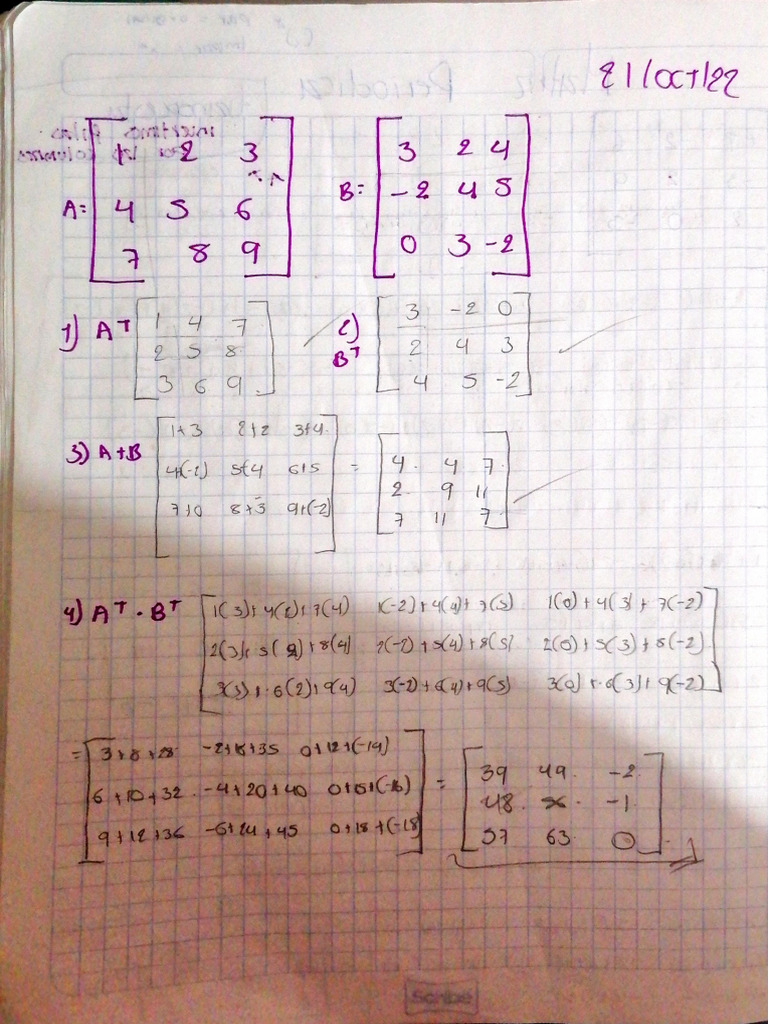 21/oct/22
A= [1 2 3
4 5 6
7 8 9]
B= [3 2 4
-2 4 5
0 3 -2]
1) A^T [1 4 7
2 5 8
3 6 9]
2) B^T [3 -2 0
2 4 3
4 5 -2]
3) A+B [1+3 2+2 3+4
4+(-2) 5+4 6+5
7+0 8+3 9+(-2)] = [4 4 7
2 9 11
7 11 7]
4) A^T · B^T [1(3)+4(2)+7(4) 1(-2)+4(4)+7(5) 1(0)+4(3)+7(-2)
2(3)+5(2)+8(4) 2(-2)+5(4)+8(5) 2(0)+5(3)+8(-2)
3(3)+6(2)+9(4) 3(-2)+6(4)+9(5) 3(0)+6(3)+9(-2)]
= [3+8+28 -2+16+35 0+12+(-14)
6+10+32 -4+20+40 0+15+(-16)
9+12+36 -6+24+45 0+18+(-18)] = [39 49 -2
48 -1
57 63 0]
Scribe